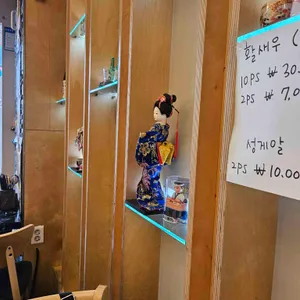 활새우 (
10PS ₩ 30.
2PS ₩ 7.0
성게알
2PS ₩ 10.00